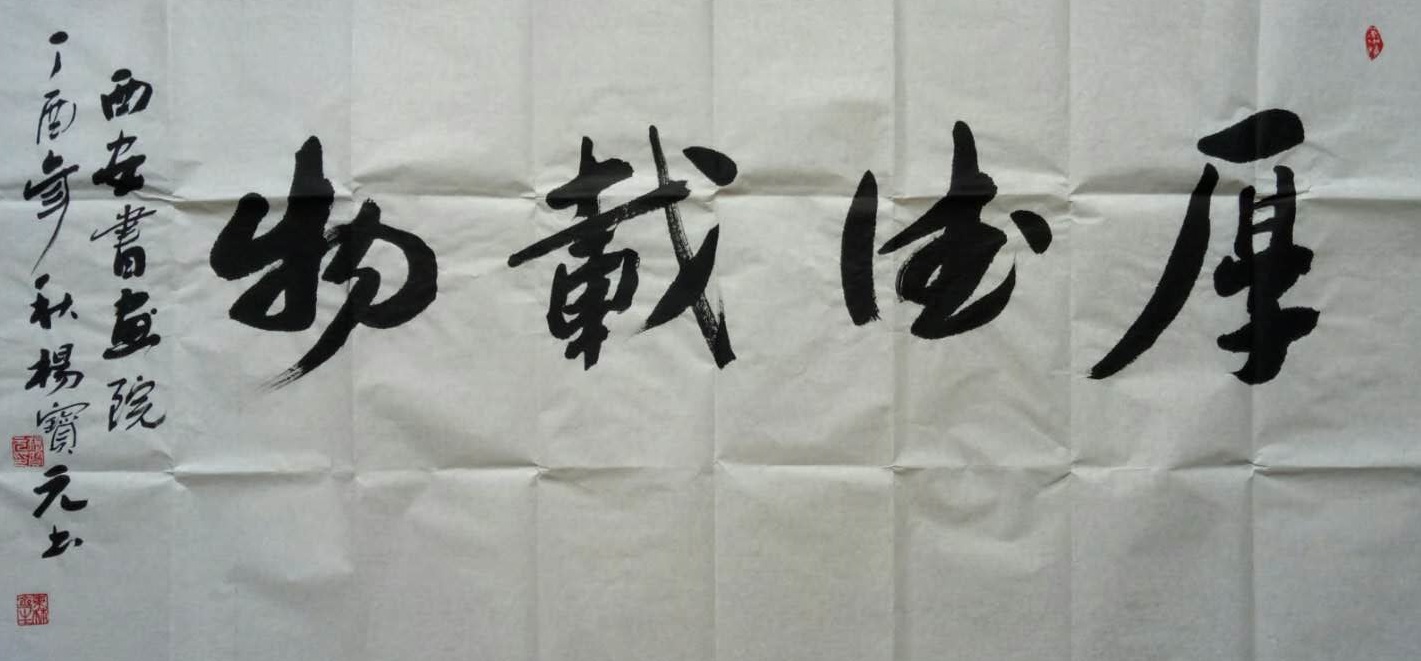 厚德載物
西安書画院
丁酉年秋楊寶元书